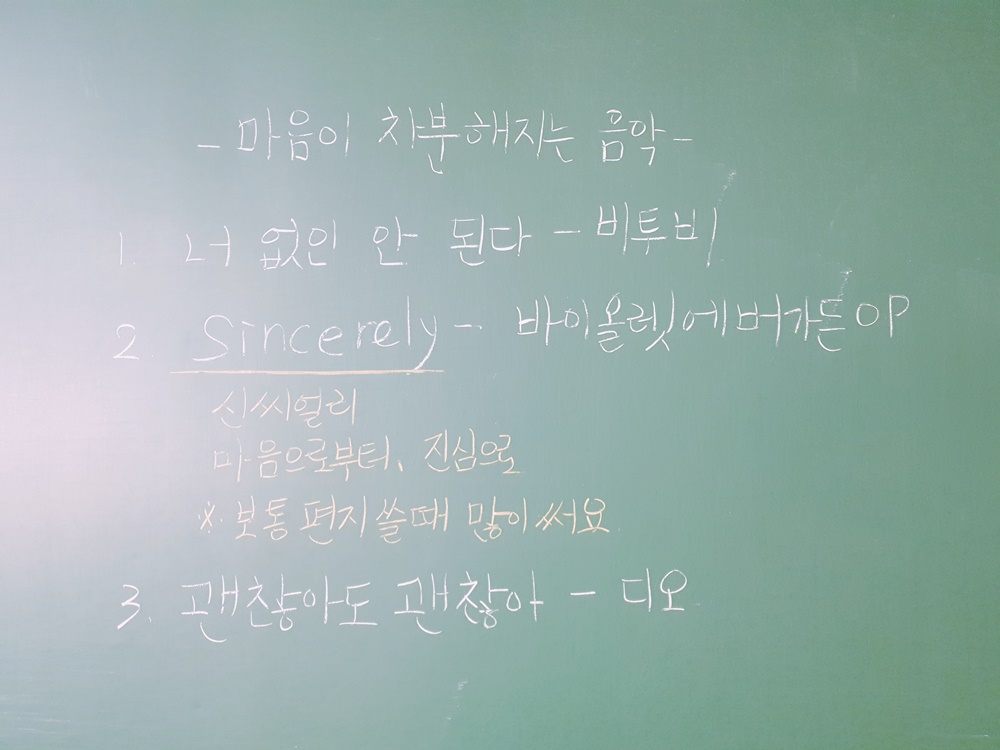 - 마음이 차분해지는 음악 -
1. 너 없인 안 된다 - 비투비
2. Sincerely - 바이올렛에버가든OP
신씨얼리
마음으로부터, 진심으로
※ 보통 편지 쓸때 많이 써요
3. 괜찮아도 괜찮아 - 디오